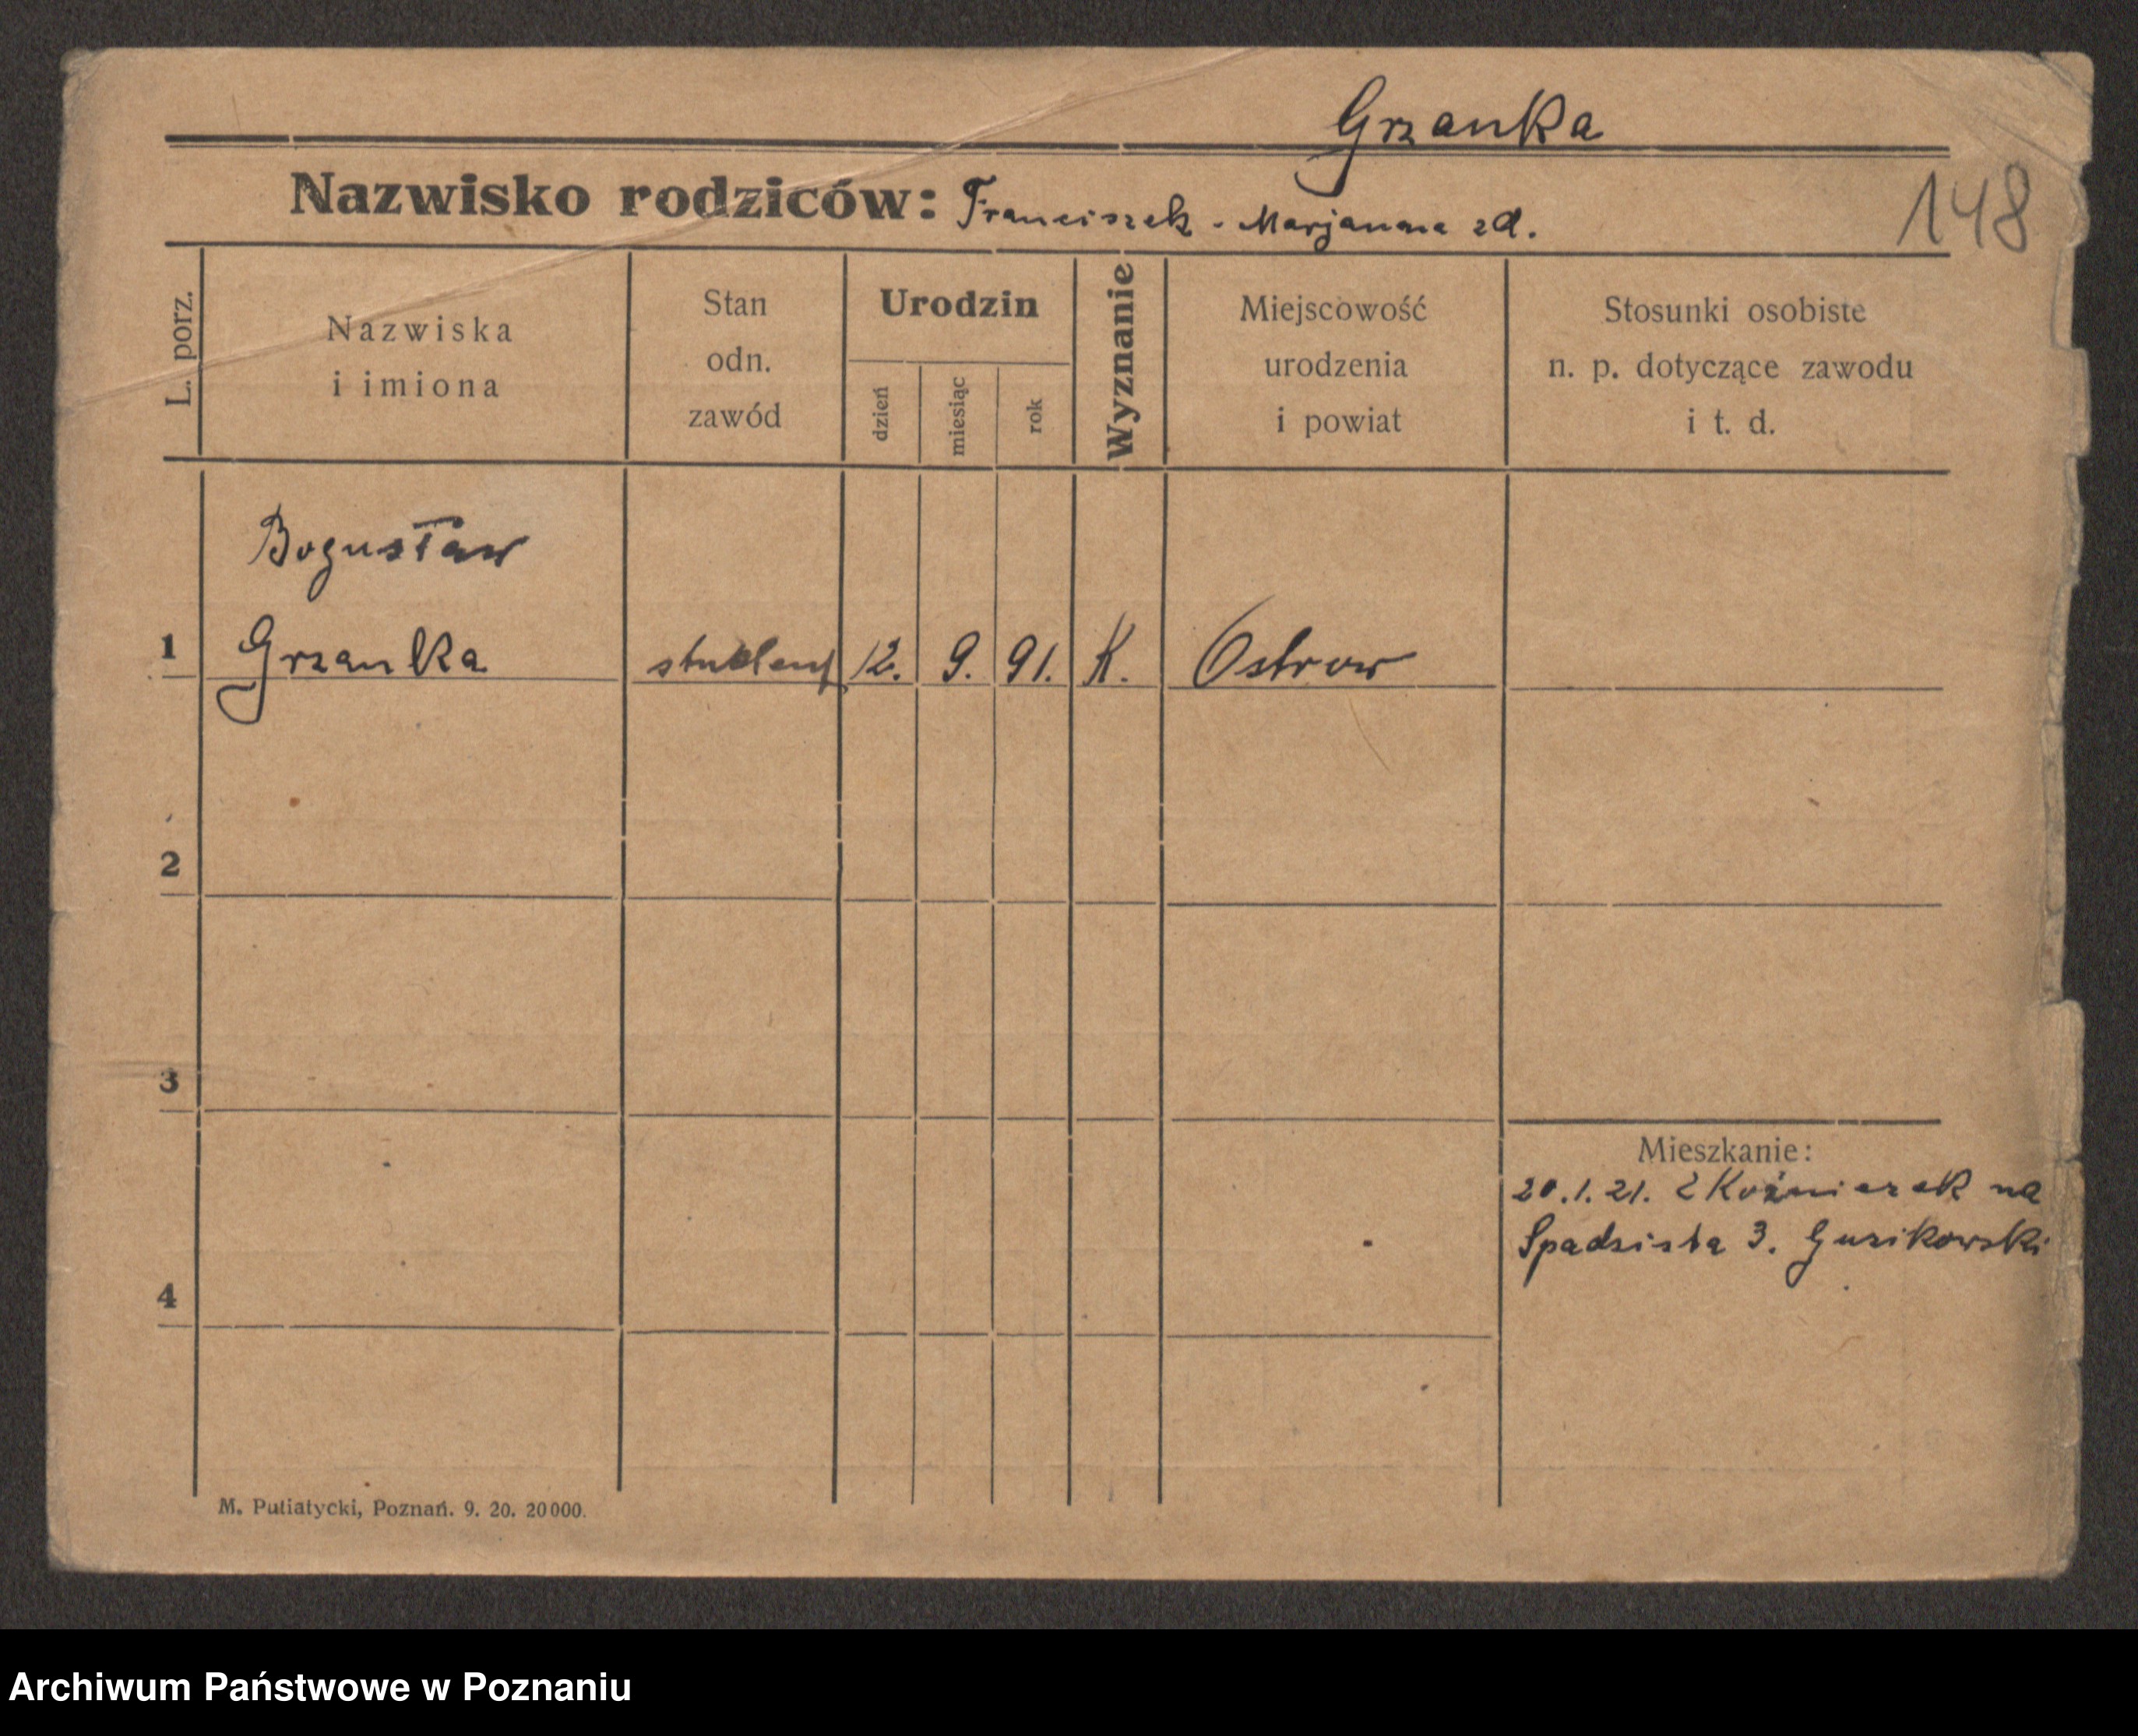 Grzanka
Nazwisko rodziców: Franciszek - Marjanna zd.
148
L. porz.
Nazwiska
i imiona
Stan
odn.
zawód
Urodzin
dzień
miesiąc
rok
Wyznanie
Miejscowość
urodzenia
i powiat
Stosunki osobiste
n. p. dotyczące zawodu
i t. d.
Bogusław
1 Grzanka student 12. 9. 91. K. Ostrow
2
3
Mieszkanie:
20.1.21. z Koźmierek na
Spadzista 3. Guzikowski
4
M. Putiatycki, Poznań. 9. 20. 20000.
Archiwum Państwowe w Poznaniu